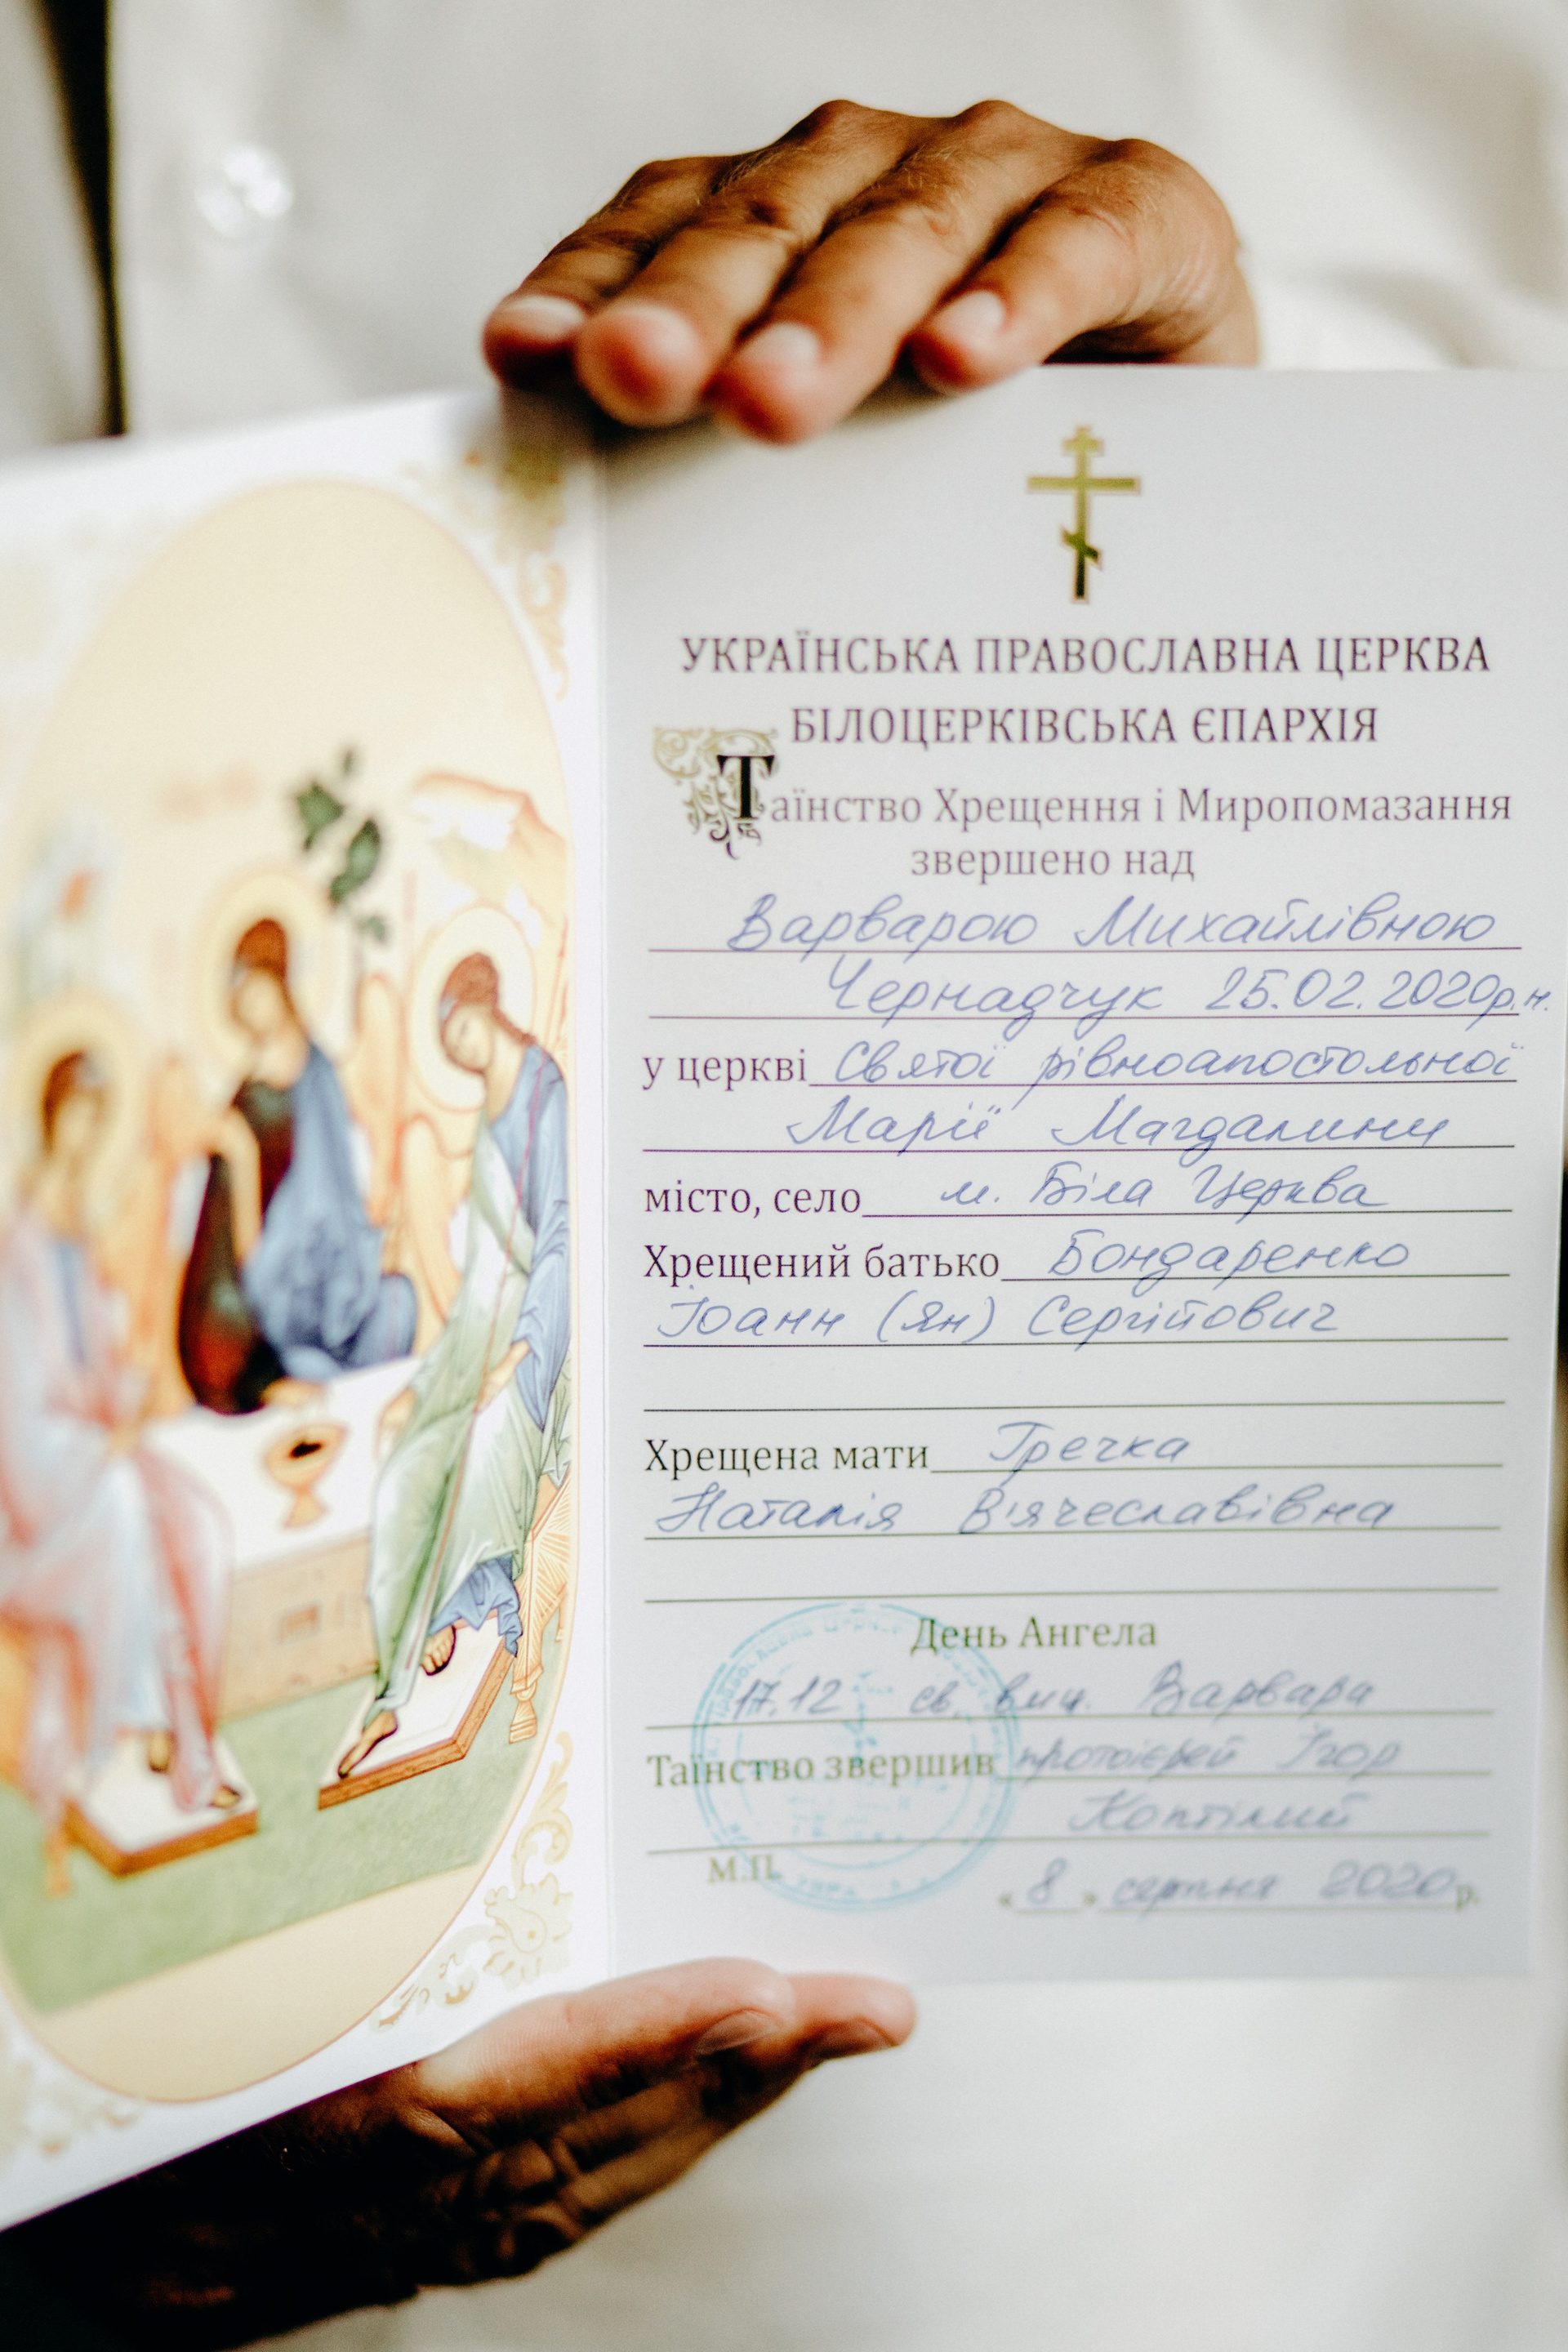 УКРАЇНСЬКА ПРАВОСЛАВНА ЦЕРКВА
БІЛОЦЕРКІВСЬКА ЄПАРХІЯ
Таїнство Хрещення і Миропомазання
звершено над
Варварою Михайлівною
Чернадчук 25.02.2020р.н.
у церкві Святої рівноапостольної
Марії Магдалини
місто, село м. Біла Церква
Хрещений батько Бондаренко
Іоанн (Ян) Сергійович
Хрещена мати Гречка
Наталія В'ячеславівна
День Ангела
17.12 св. вмц. Варвара
Таїнство звершив протоієрей Ігор
Коптілий
М.П.
«8» серпня 2020 р.